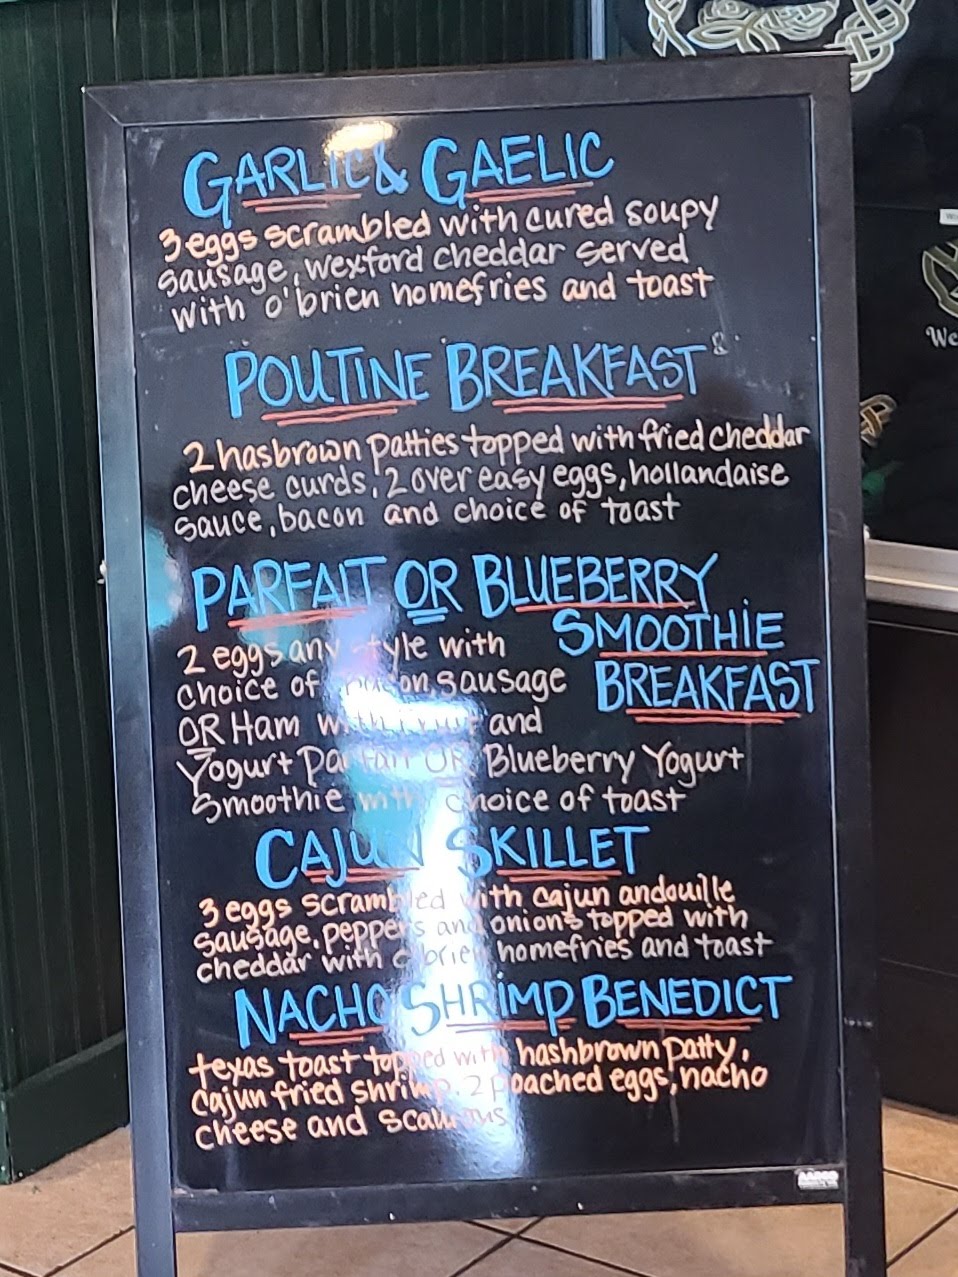 GARLIC & GAELIC
3 eggs scrambled with cured soupy
sausage, wexford cheddar served
with o'brien homefries and toast
POUTINE BREAKFAST
2 hasbrown patties topped with fried cheddar
cheese curds, 2 over easy eggs, hollandaise
sauce, bacon and choice of toast
PARFAIT OR BLUEBERRY
SMOOTHIE
BREAKFAST
2 eggs any style with
choice of bacon, sausage
OR Ham with Fruit and
Yogurt Parfait OR Blueberry Yogurt
Smoothie with choice of toast
CAJUN SKILLET
3 eggs scrambled with cajun andouille
sausage, peppers and onions topped with
cheddar with o'brien homefries and toast
NACHO SHRIMP BENEDICT
texas toast topped with hashbrown patty,
cajun fried shrimp, 2 poached eggs, nacho
cheese and scallions
We